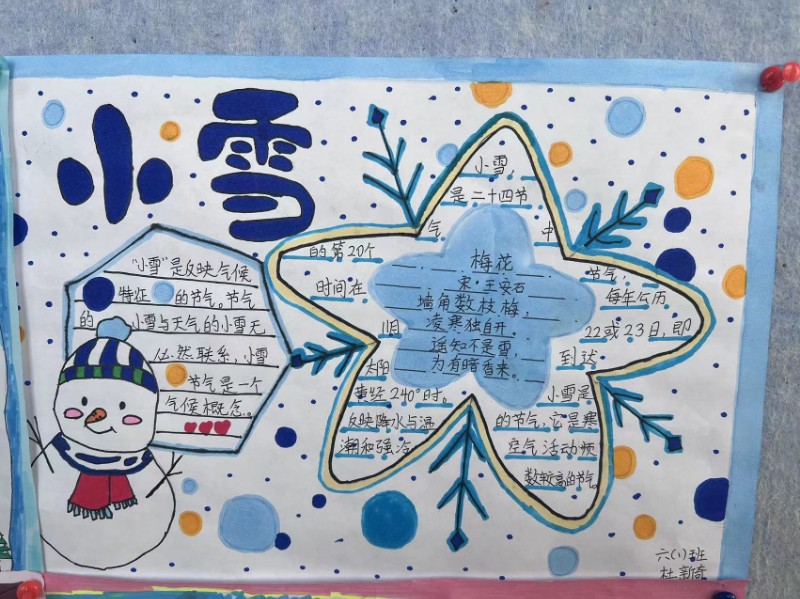 小雪
"小雪"是反映气候
特征的节气。节气
的小雪与天气的小雪无
必然联系,小雪
节气是一个
气候概念。
小雪,
是二十四节
气中
的第20个节气,
时间在每年公历
11月22或23日,即
太阳到达
黄经240°时。小雪是
反映降水与温的节气,它是寒
潮和强冷空气活动频
数较高的节气。
梅花
宋·王安石
墙角数枝梅,
凌寒独自开。
遥知不是雪,
为有暗香来。
六(1)班
杜新奇